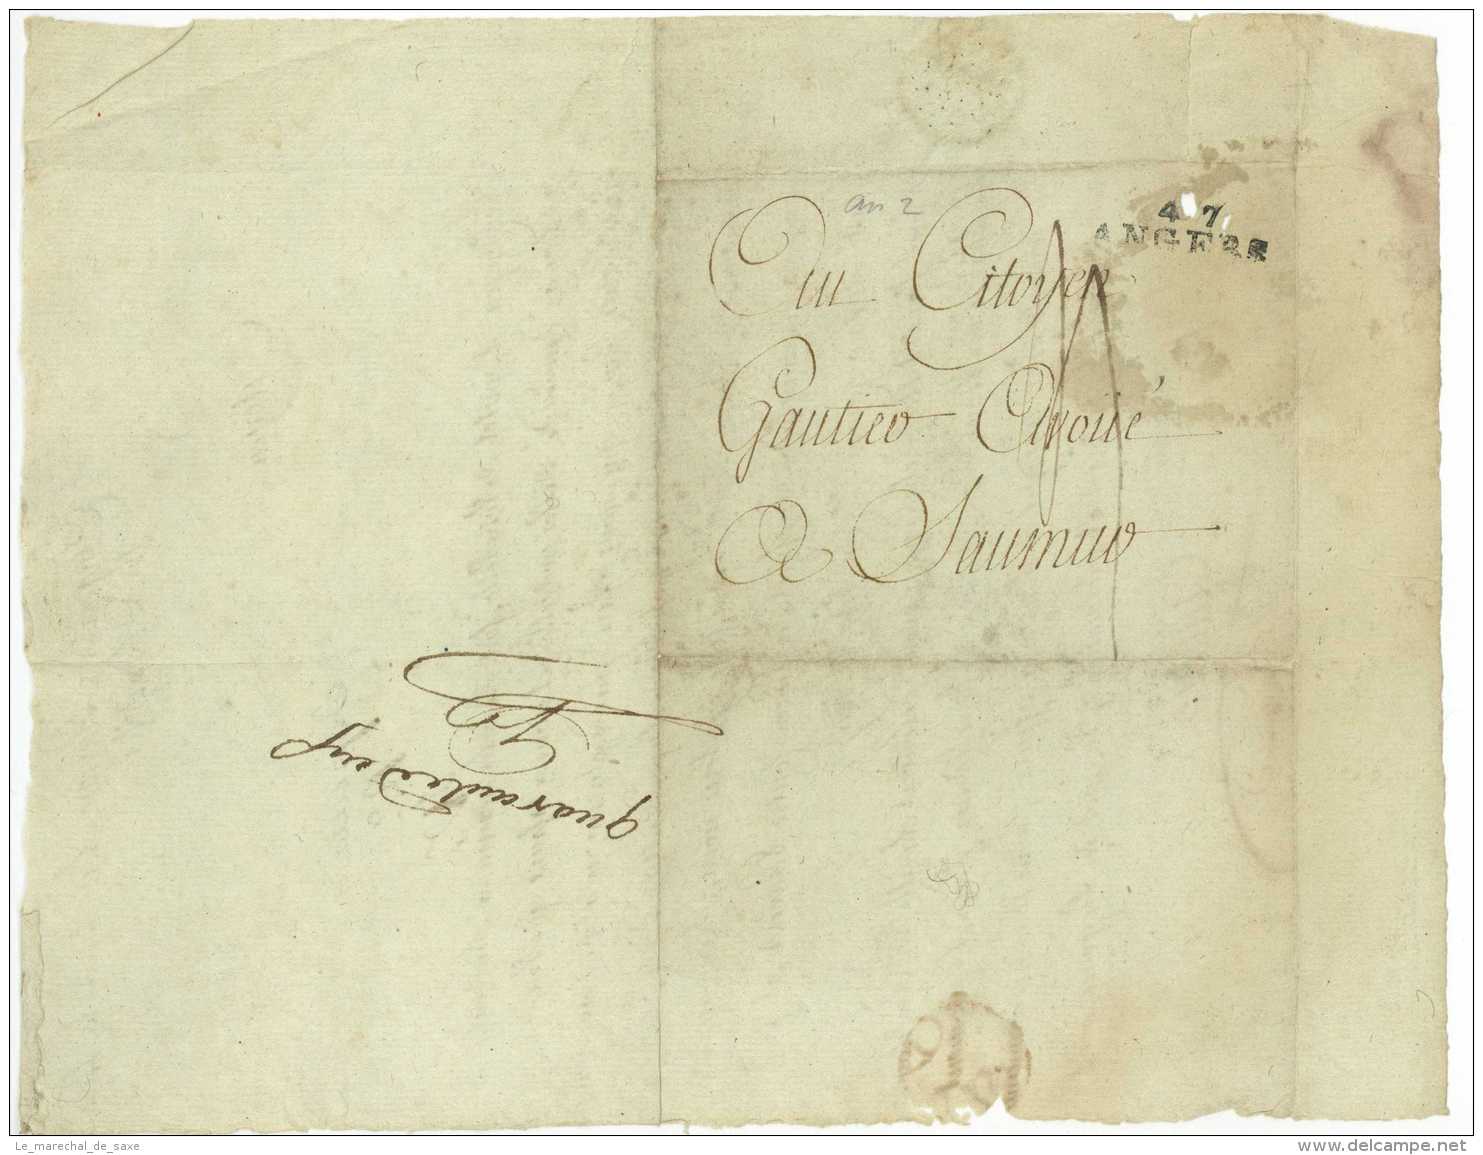 an 2
47
ANGERS
Au Citoyen
Gautier Avoüé
A Saumur
Le_marechal_de_saxe
www.delcampe.net